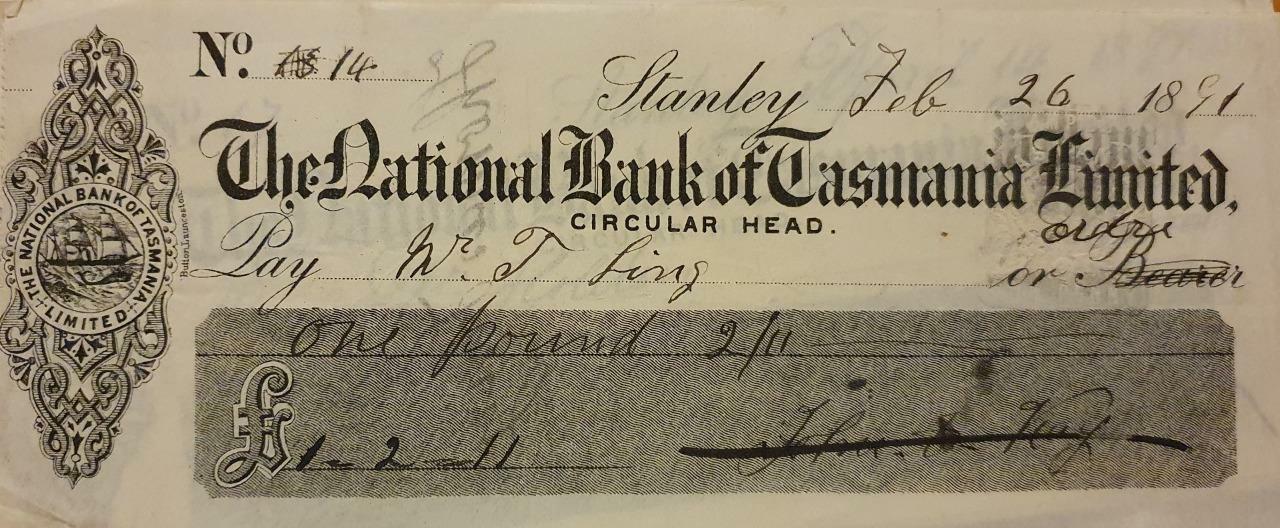 No. 14
Stanley Feb 26 1891
The National Bank of Tasmania Limited,
CIRCULAR HEAD.
order
Pay Mr. T. Ling or Bearer
One pound 2/11
£ 1-2-11
THE NATIONAL BANK OF TASMANIA LIMITED
Button Launceston